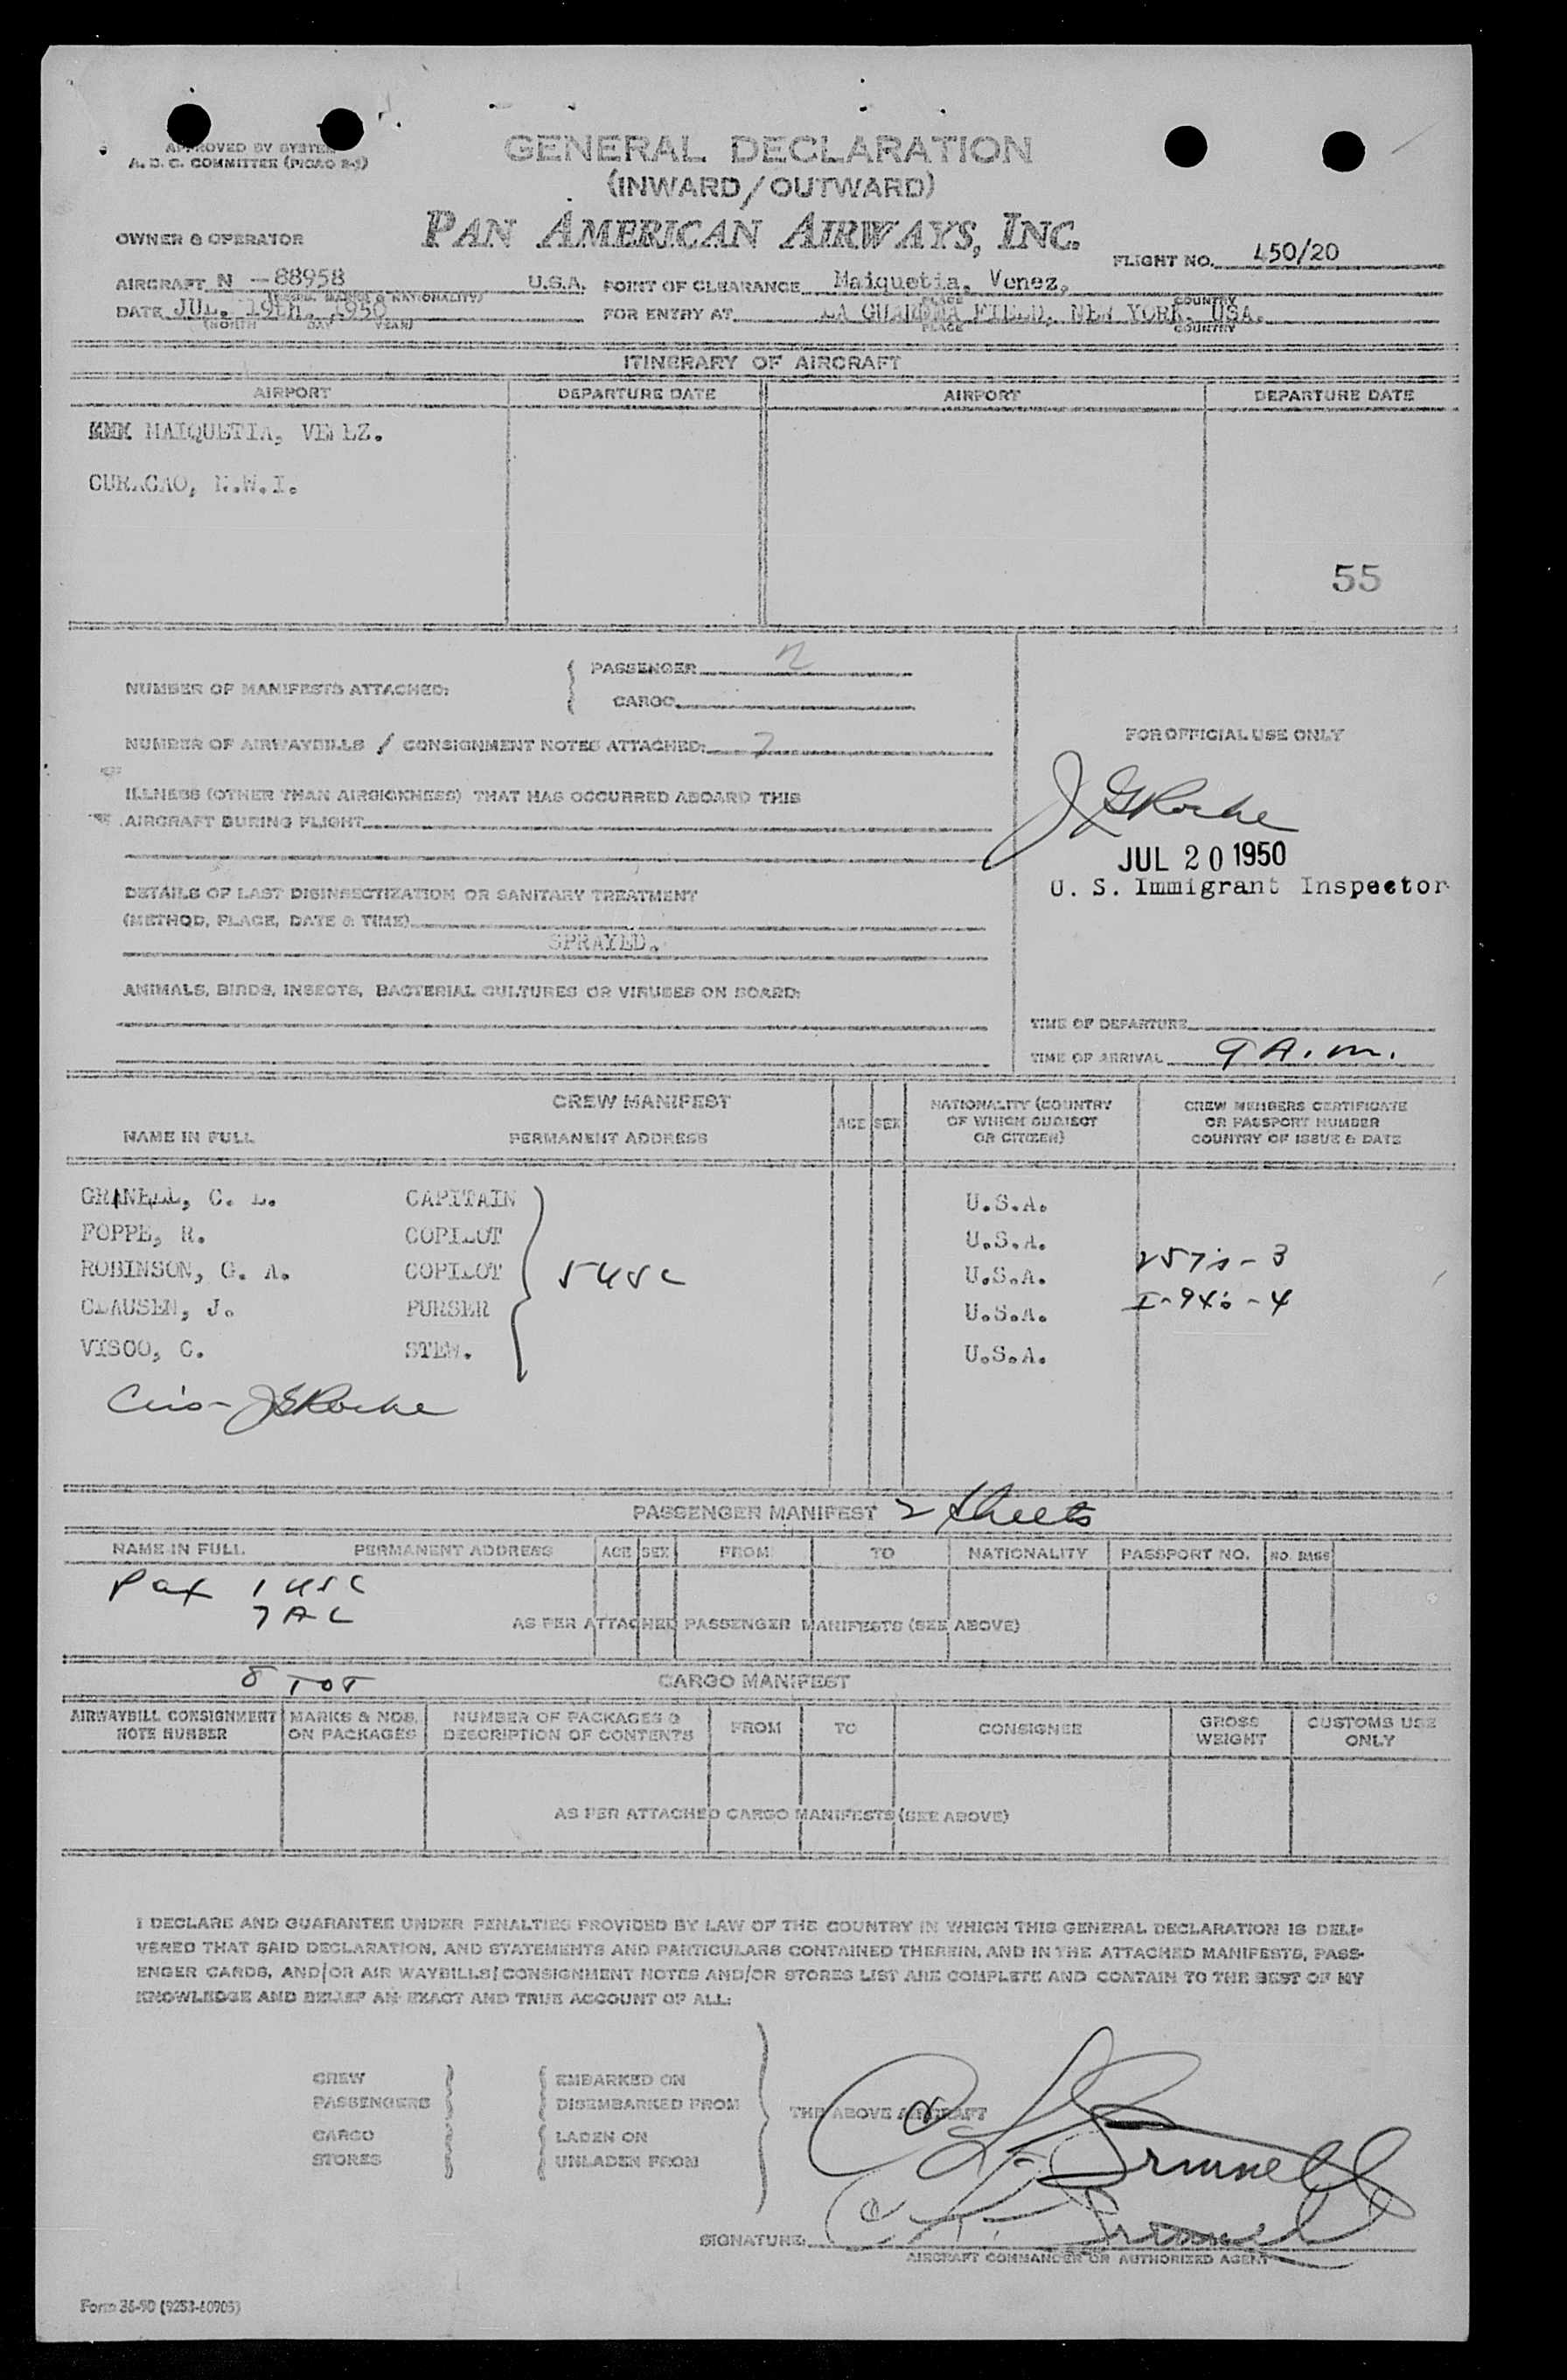 APPROVED BY SYSTEM
A. D. C. COMMITTEE (PICAO 2-5)
GENERAL DECLARATION
(INWARD/OUTWARD)
OWNER & OPERATOR
PAN AMERICAN AIRWAYS, INC.
FLIGHT NO. 450/20
AIRCRAFT N -88958 U.S.A. POINT OF CLEARANCE Maiquetia, Venez,
(REGIS. MARKS & NATIONALITY) PLACE COUNTRY
DATE JUL. 19th, 1950 FOR ENTRY AT LA GUARDIA FIELD, NEW YORK, USA.
(MONTH DAY YEAR) PLACE COUNTRY
ITINERARY OF AIRCRAFT
AIRPORT DEPARTURE DATE AIRPORT DEPARTURE DATE
MAIQUETIA, VENEZ.
CURACAO, N.W.I.
55
NUMBER OF MANIFESTS ATTACHED: { PASSENGER 2
CARGO
NUMBER OF AIRWAYBILLS / CONSIGNMENT NOTES ATTACHED: 7
FOR OFFICIAL USE ONLY
ILLNESS (OTHER THAN AIRSICKNESS) THAT HAS OCCURRED ABOARD THIS
AIRCRAFT DURING FLIGHT
J G Roche
JUL 20 1950
U. S. Immigrant Inspector
DETAILS OF LAST DISINSECTIZATION OR SANITARY TREATMENT
(METHOD, PLACE, DATE & TIME)
SPRAYED.
ANIMALS, BIRDS, INSECTS, BACTERIAL CULTURES OR VIRUSES ON BOARD:
TIME OF DEPARTURE
TIME OF ARRIVAL 9 A.m.
CREW MANIFEST
NAME IN FULL PERMANENT ADDRESS AGE SEX NATIONALITY (COUNTRY OF WHICH SUBJECT OR CITIZEN) CREW MEMBERS CERTIFICATE OR PASSPORT NUMBER COUNTRY OF ISSUE & DATE
GRINELL, C. L. CAPITAIN U.S.A.
POPPE, R. COPILOT U.S.A.
ROBINSON, G. A. COPILOT 5 USC U.S.A. 257's - 3
CLAUSEN, J. PURSER U.S.A. I-94's - 4
VISCO, C. STEW. U.S.A.
J G Roche
PASSENGER MANIFEST 2 sheets
NAME IN FULL PERMANENT ADDRESS AGE SEX FROM TO NATIONALITY PASSPORT NO. NO. BAGS
Pax 1 USC
7 AL
AS PER ATTACHED PASSENGER MANIFESTS (SEE ABOVE)
8 TOT
CARGO MANIFEST
AIRWAYBILL CONSIGNMENT NOTE NUMBER MARKS & NOS. ON PACKAGES NUMBER OF PACKAGES & DESCRIPTION OF CONTENTS FROM TO CONSIGNEE GROSS WEIGHT CUSTOMS USE ONLY
AS PER ATTACHED CARGO MANIFESTS (SEE ABOVE)
I DECLARE AND GUARANTEE UNDER PENALTIES PROVIDED BY LAW OF THE COUNTRY IN WHICH THIS GENERAL DECLARATION IS DELI-
VERED THAT SAID DECLARATION, AND STATEMENTS AND PARTICULARS CONTAINED THEREIN, AND IN THE ATTACHED MANIFESTS, PASS-
ENGER CARDS, AND/OR AIR WAYBILLS/CONSIGNMENT NOTES AND/OR STORES LIST ARE COMPLETE AND CONTAIN TO THE BEST OF MY
KNOWLEDGE AND BELIEF AN EXACT AND TRUE ACCOUNT OF ALL:
CREW EMBARKED ON
PASSENGERS DISEMBARKED FROM
THE ABOVE AIRCRAFT
CARGO LADEN ON
STORES UNLADEN FROM
C L Grinnell
SIGNATURE: C L Grinnell
AIRCRAFT COMMANDER OR AUTHORIZED AGENT
Form 36-90 (9253-60905)